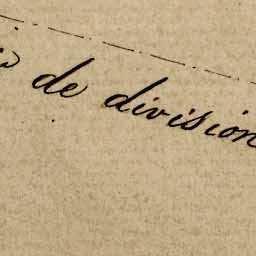 de division